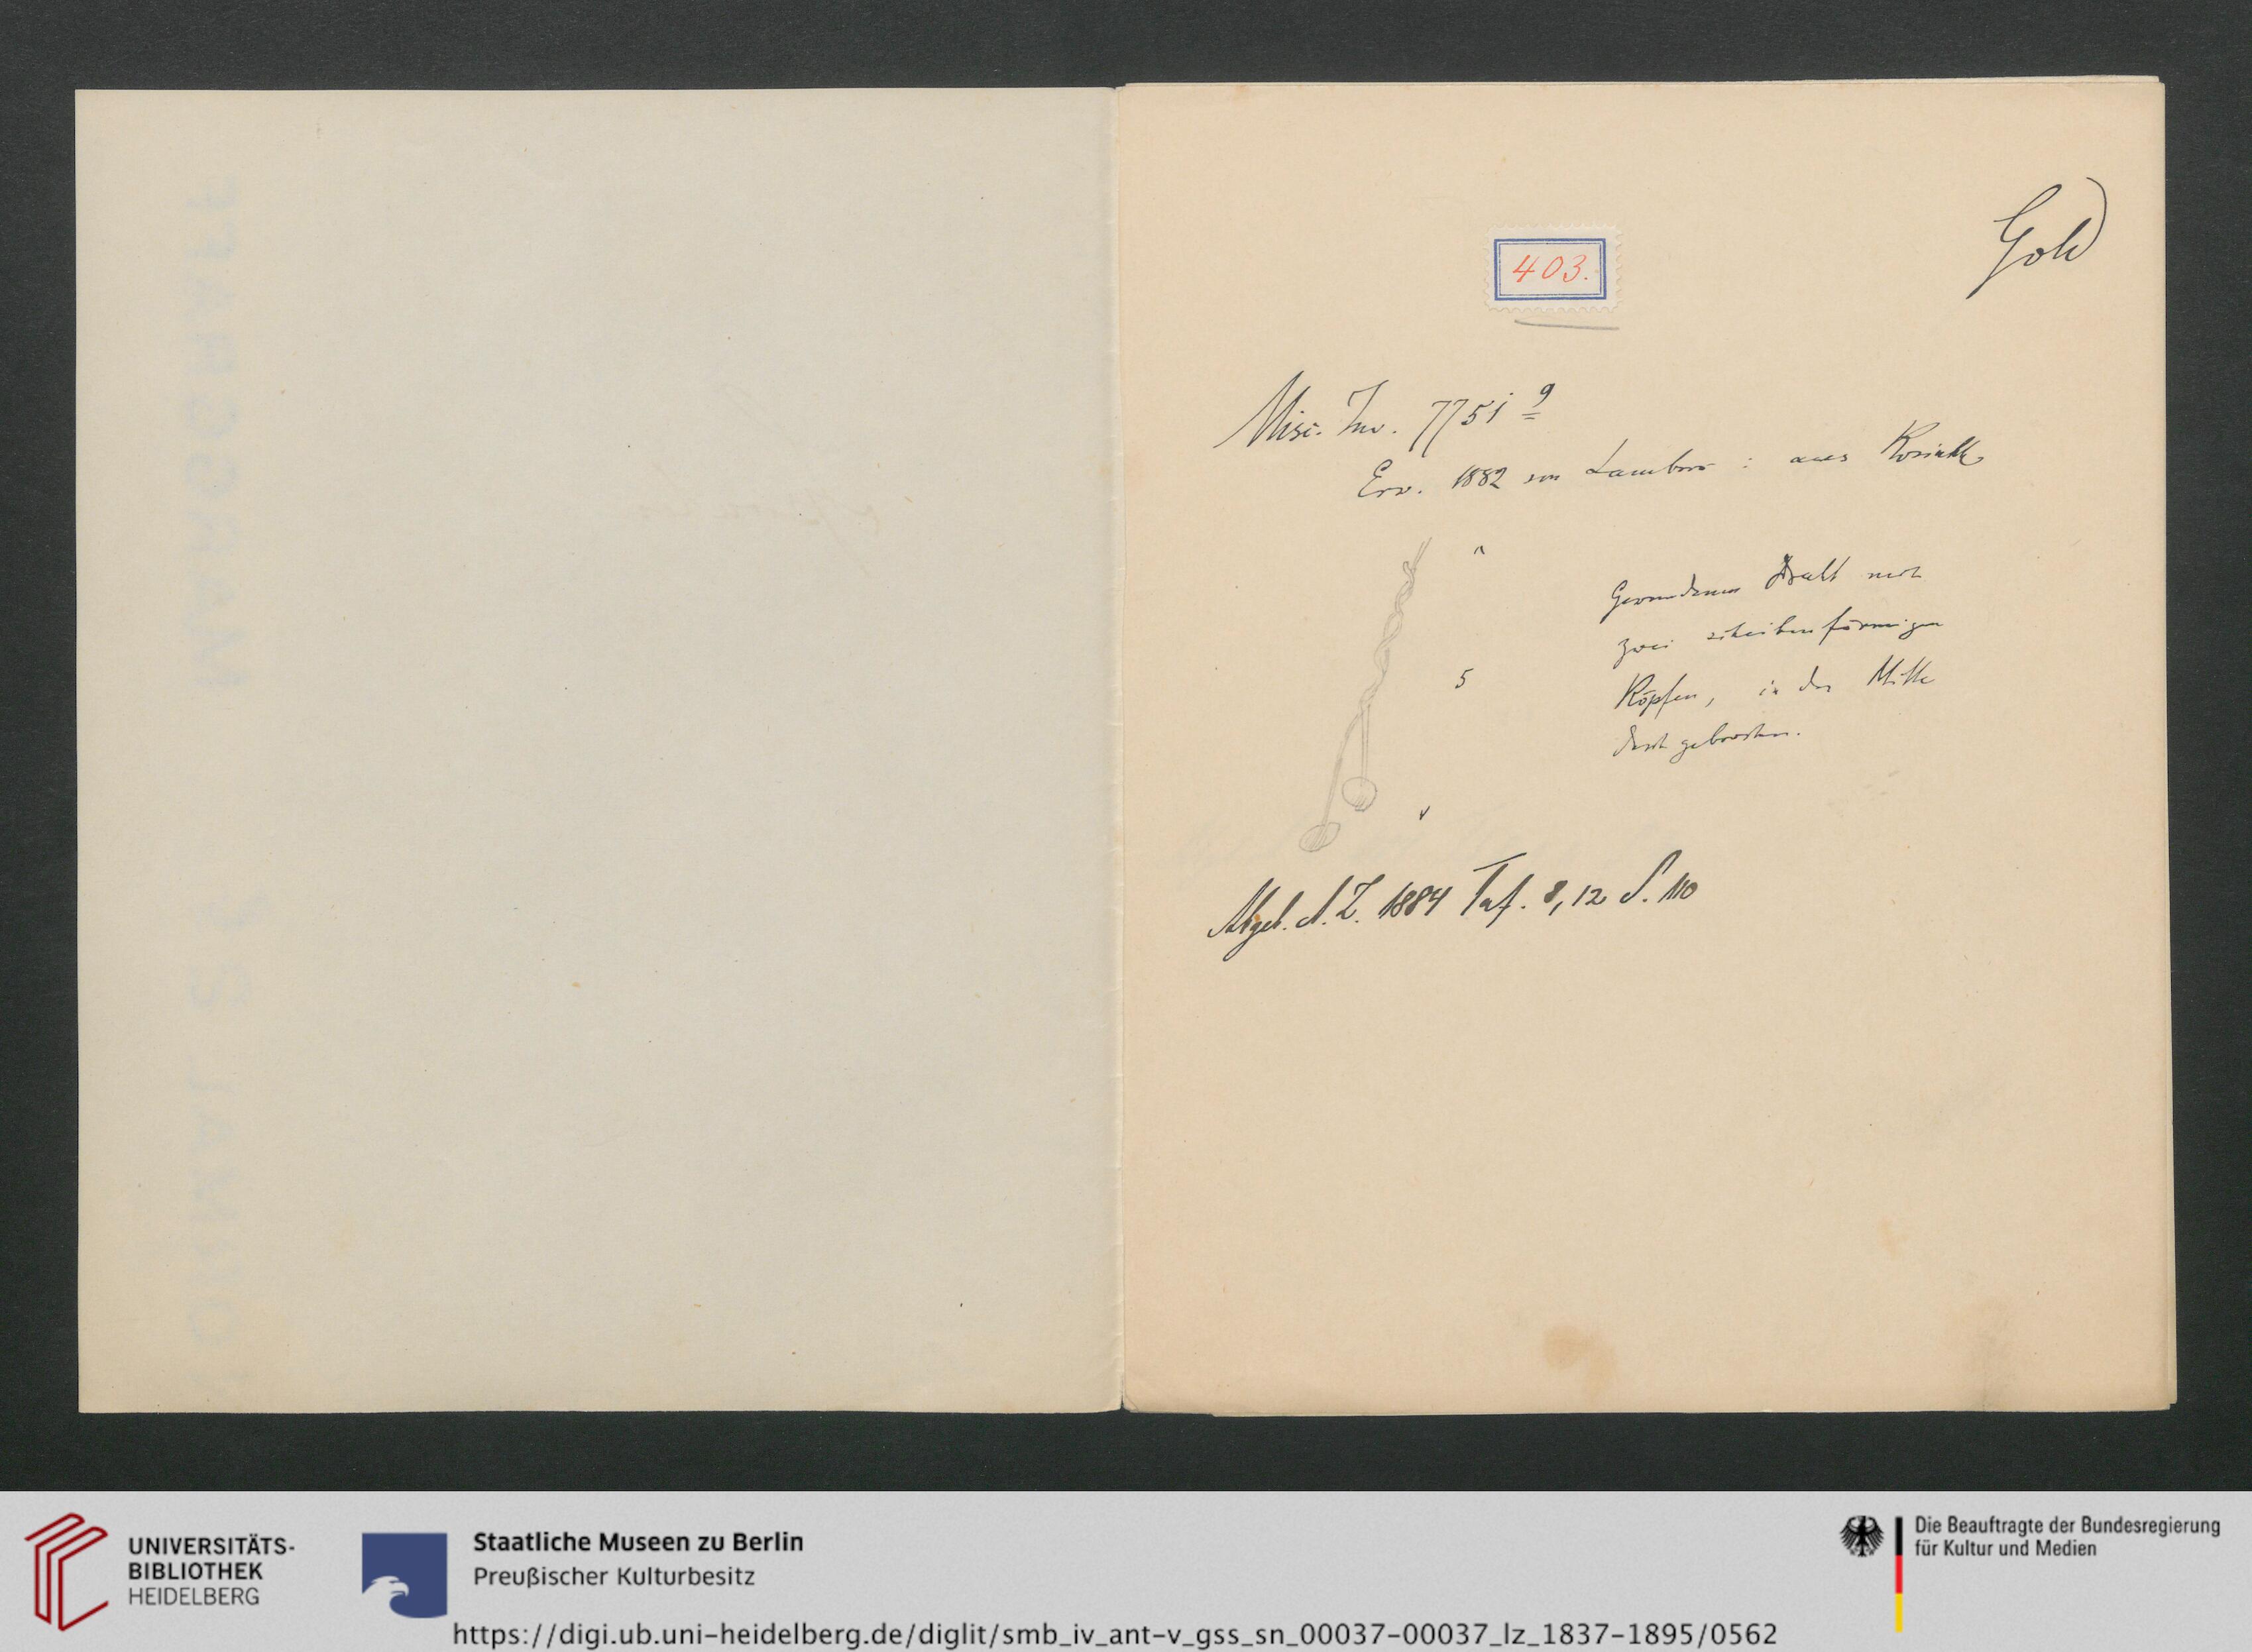 Gold
403.
Misc. Inv. 7751 9
Erw. 1882 von Lambros : aus Korinth
Gewundener Draht mit
zwei scheibenförmigen
5
Köpfen, in der Mitte
gebrochen.
Abgeb. A. Z. 1884 Taf. 8, 12 S. 110
NORMAL 2 F MARGGRAFF
UNIVERSITÄTS-
BIBLIOTHEK
HEIDELBERG
Staatliche Museen zu Berlin
Preußischer Kulturbesitz
Die Beauftragte der Bundesregierung
für Kultur und Medien
https://digi.ub.uni-heidelberg.de/diglit/smb_iv_ant-v_gss_sn_00037-00037_lz_1837-1895/0562